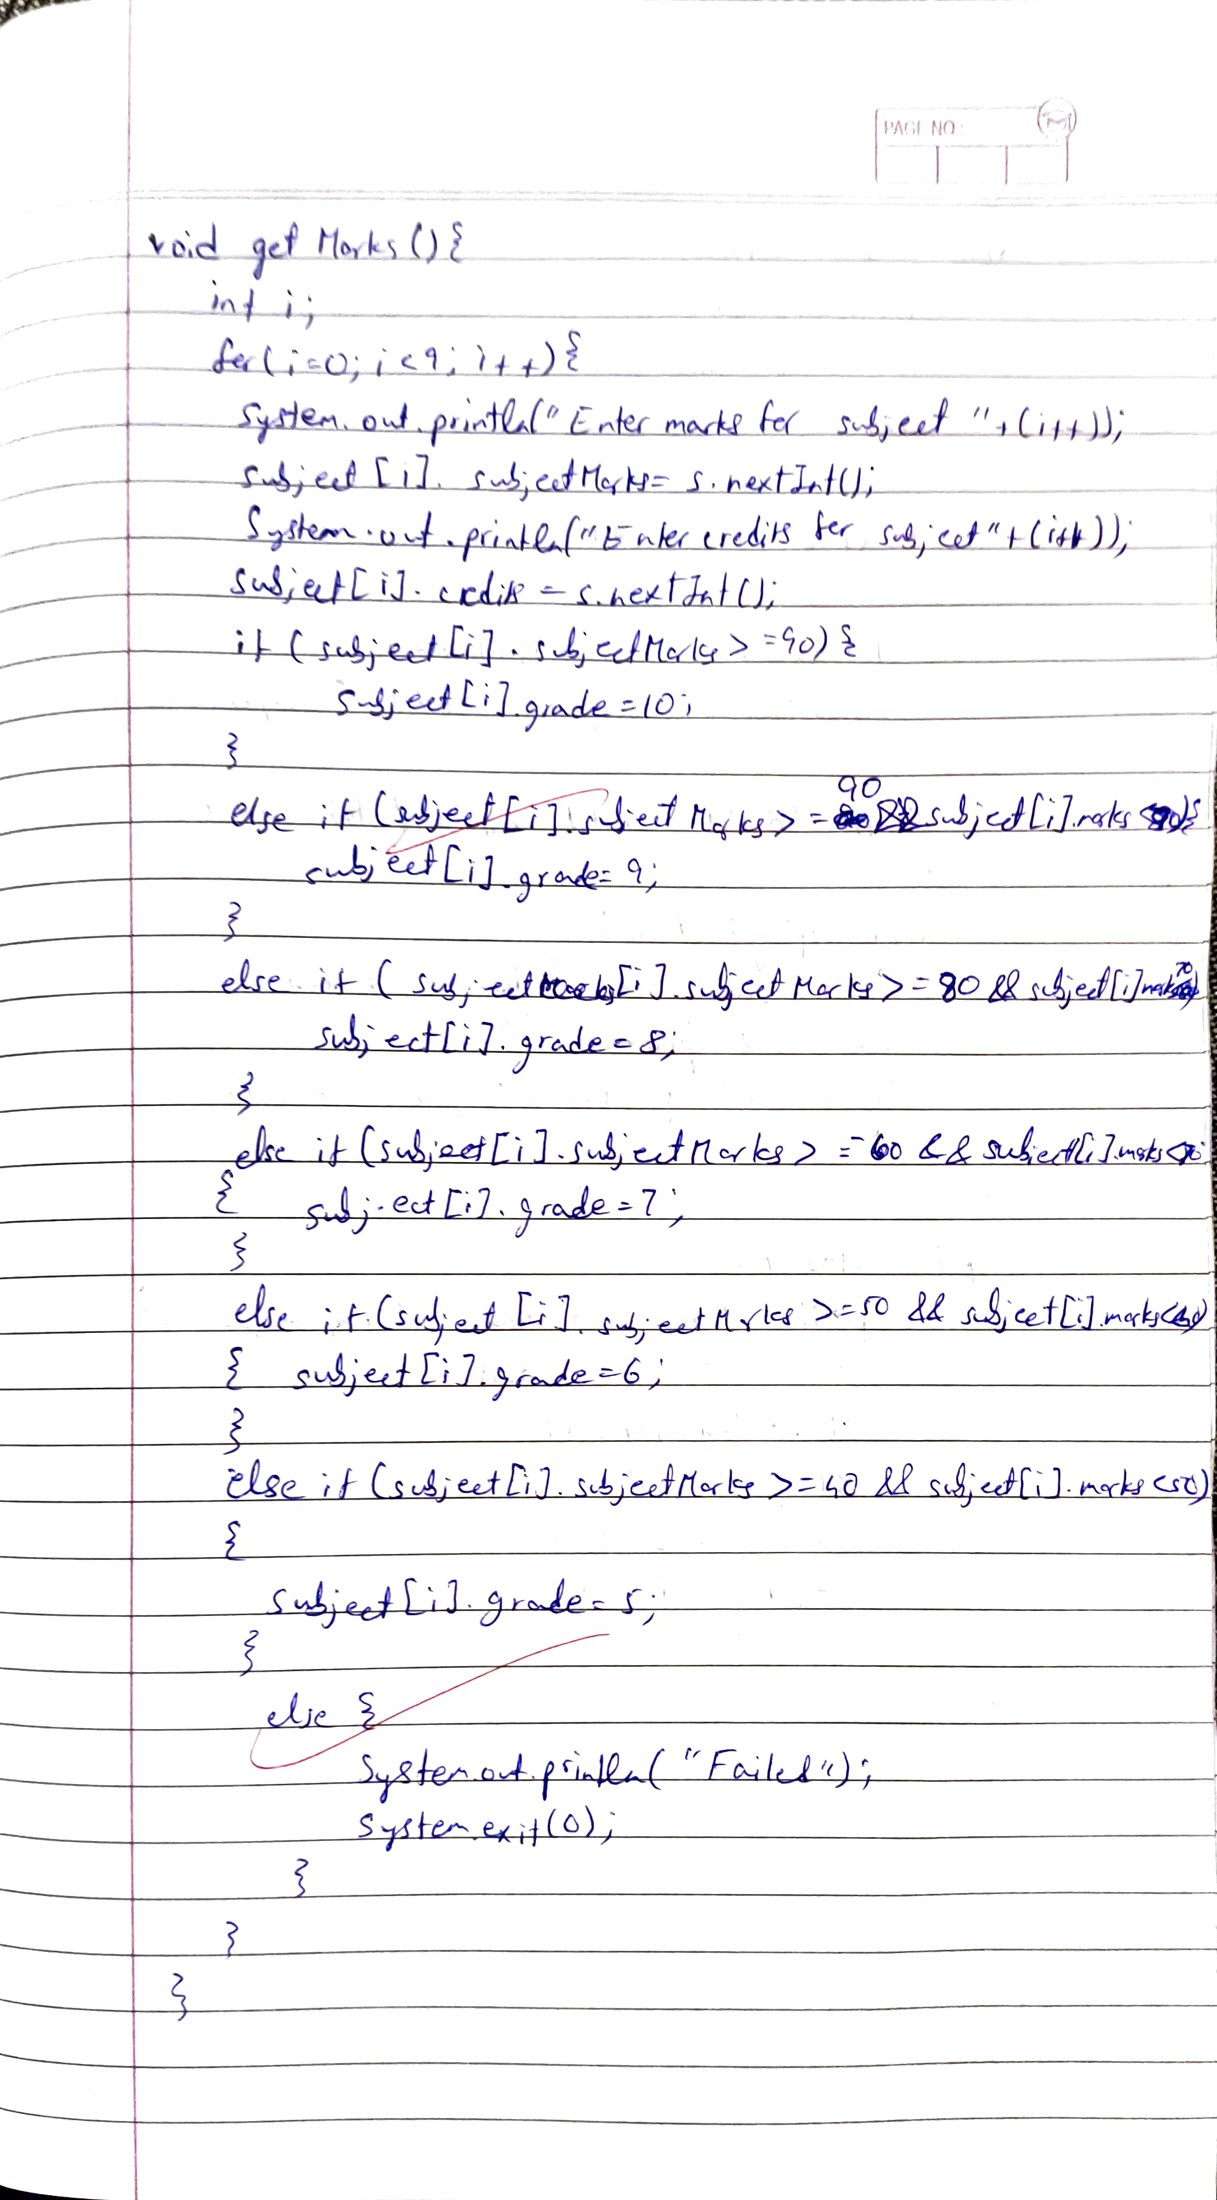 PAGE NO:
void get Marks () {
int i;
for(i=0; i<9; i++) {
System.out.println("Enter marks for subject "+(i++));
subject [i]. subjectMarks= s.nextInt();
System.out.println("Enter credits for subject"+(i++));
subject[i]. credits = s.nextInt();
if (subject[i]. subjectMarks >=90) {
subject[i].grade =10;
}
90
else if (subject[i].subject Marks >= && subject[i].marks
subject[i].grade= 9;
}
70
else if ( subject [i].subject Marks >= 80 && subject[i]
subject[i]. grade = 8;
}
else if (subject[i].subjectMarks >= 60 && subject[i].marks
{ subject[i]. grade =7;
}
else if (subject [i]. subjectMarks >=50 && subject[i].marks
{ subject[i].grade =6;
}
else if (subject[i]. subjectMarks >=40 && subject[i].marks <50)
{
subject[i]. grade= 5;
}
else {
System.out.println( "Failed");
System.exit(0);
}
}
}